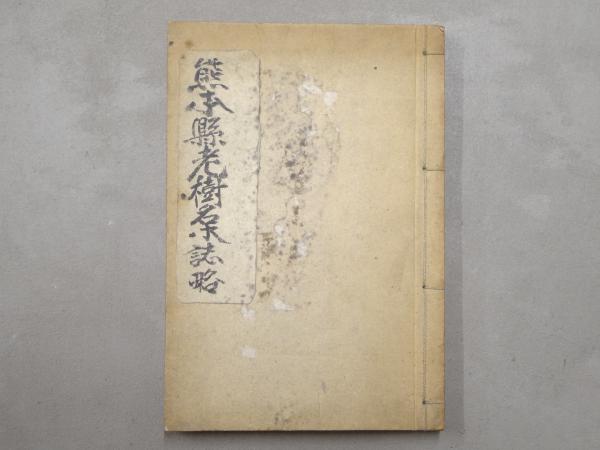 熊本縣老樹名木誌略